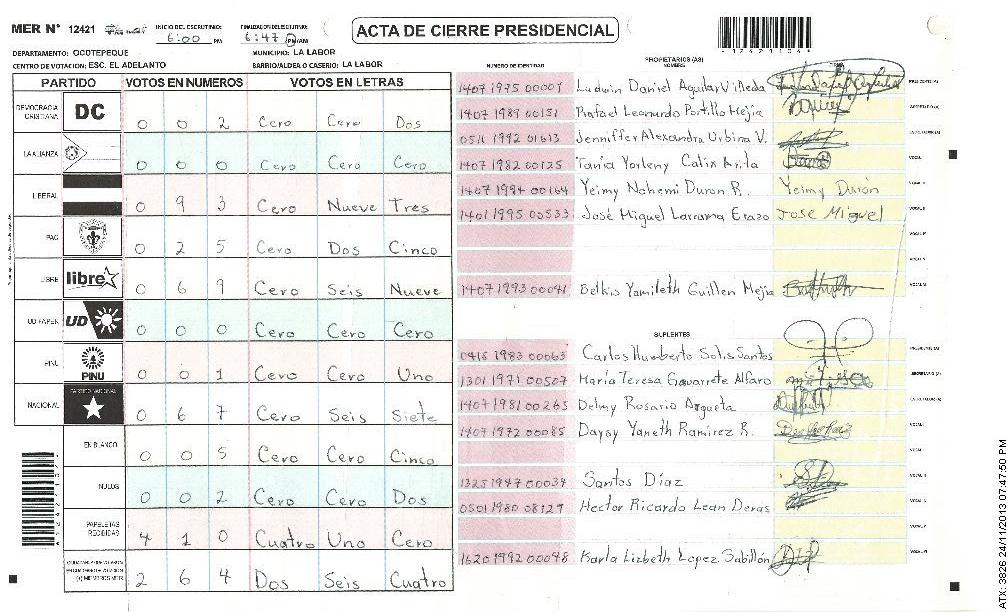 MER N° 12421 INICIO DEL ESCRUTINIO: 6:00 PM FINALIZACION DEL ESCRUTINIO: 6:47 PM/AM
ACTA DE CIERRE PRESIDENCIAL
DEPARTAMENTO: OCOTEPEQUE MUNICIPIO: LA LABOR
CENTRO DE VOTACION: ESC. EL ADELANTO BARRIO/ALDEA O CASERIO: LA LABOR
PARTIDO VOTOS EN NUMEROS VOTOS EN LETRAS
DEMOCRACIA CRISTIANA DC 0 0 2 Cero Cero Dos
LA ALIANZA 0 0 0 Cero Cero Cero
LIBERAL 0 9 3 Cero Nueve Tres
PAC 0 2 5 Cero Dos Cinco
LIBRE libre 0 6 9 Cero Seis Nueve
UD FAPER UD 0 0 0 Cero Cero Cero
PINU PINU 0 0 1 Cero Cero Uno
NACIONAL PARTIDO NACIONAL 0 6 7 Cero Seis Siete
EN BLANCO 0 0 5 Cero Cero Cinco
NULOS 0 0 2 Cero Cero Dos
PAPELETAS RECIBIDAS 4 1 0 Cuatro Uno Cero
2 6 4 Dos Seis Cuatro
PROPIETARIOS (AS)
NUMERO DE IDENTIDAD NOMBRE FIRMA
1407 1975 00007 Ludwin Daniel Aguilar Villeda PRESIDENTE (A)
1407 1989 00151 Rafael Leonardo Portillo Mejía SECRETARIO (A)
0511 1992 01613 Jenniffer Alexandra Urbina V. ESCRUTADOR (A)
1407 1982 00125 Tania Yorleny Calix Arita VOCAL I
1407 1994 00164 Yeimy Nohemi Duron R. Yeimy Durón VOCAL II
1401 1995 00533 José Miguel Larrama Erazo José Miguel VOCAL III
VOCAL IV
VOCAL V
1407 1993 00041 Belkis Yamileth Guillen Mejía VOCAL VI
SUPLENTES
0415 1983 00063 Carlos Humberto Solis Santos PRESIDENTE (A)
1301 1971 00507 María Teresa Gavarrete Alfaro SECRETARIO (A)
1407 1981 00265 Delmy Rosario Argueta ESCRUTADOR (A)
1407 1972 00085 Daysy Yaneth Ramírez R. VOCAL I
1325 1947 00034 Santos Díaz
0501 1980 08127 Hector Ricardo Lean Deras
1620 1992 00048 Karla Lizbeth Lopez Sabillón
ATX 3826 24/11/2013 07:47:50 PM